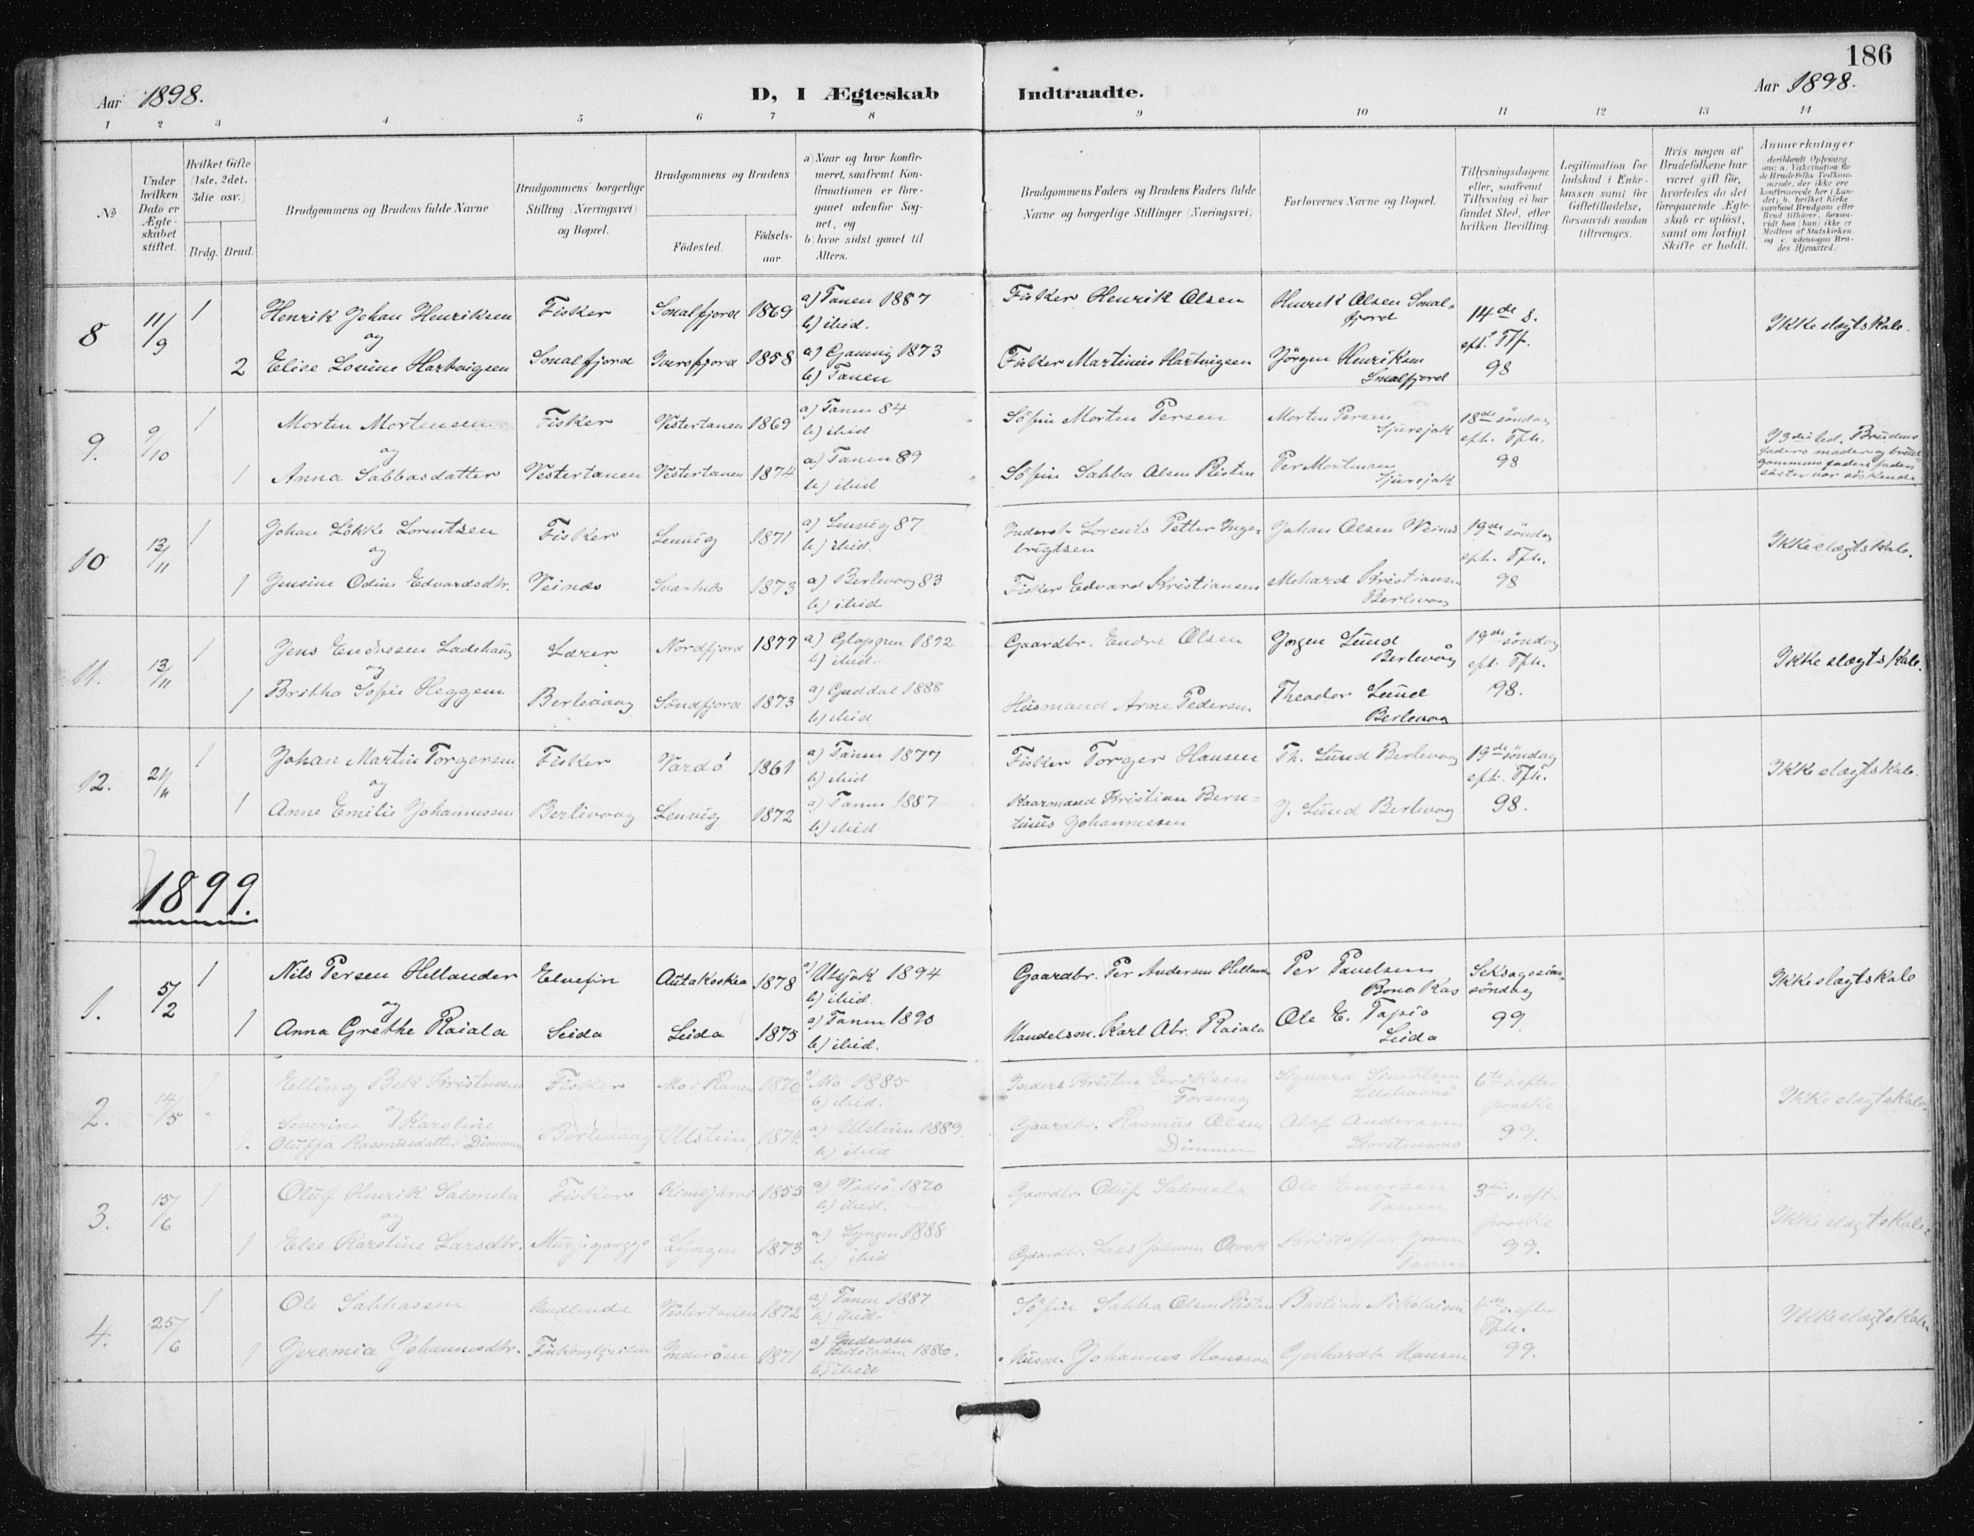 186
Aar 1898.
D, I Ægteskab Indtraadte.
Aar 1898.
1 2 3 4 5 6 7 8 9 10 11 12 13 14
No
Under hvilken Dato er Ægteskabet stiftet.
Hvilket Gifte (1ste, 2det, 3die osv.)
Brdg. Brud.
Brudgommens og Brudens fulde Navne
Brudgommens borgerlige Stilling (Næringsvei) og Bopæl.
Brudgommens og Brudens
Fødested. Fødselsaar.
a) Naar og hvor konfirmeret, saafremt Konfirmationen er foregaaet udenfor Sognet, og
b) hvor sidst gaaet til Alters.
Brudgommens Faders og Brudens Faders fulde Navne og borgerlige Stillinger (Næringsvei)
Forlovernes Navne og Bopæl.
Tillysningsdagene eller, saafremt Tillysning ei har fundet Sted, efter hvilken Bevilling.
Legitimation for Indskud i Enkekassen samt for Giftetilladelse, forsaavidt saadan tiltrænges.
Hvis nogen af Brudefolkene har været gift før, hvorledes da det foregaaende Ægteskab er opløst, samt om lovligt Skifte er holdt.
Anmerkninger
8 11/9 1 Henrik Johan Henriksen Fisker Smalfjord 1869 a) Tanen 1887 Fisker Henrik Olsen Henrik Olsen Smalfjord 14de s. Ikke slægtskab.
og b) ibid. eft. Tfh.
2 Elise Lovine Hartvigsen Smalfjord Iversfjord 1858 a) Gamvig 1873 Fisker Martinus Hartvigsen Jørgen Henriksen 98
b) Tanen Smalfjord
9. 9/10 1 Morten Mortensen Fisker Vestertanen 1869 a) Tanen 84 Søfin Morten Persen Morten Persen 18de søndag
og b) ibid Sjursjok eft. Tfh.
1 Anna Sabbasdatter Vestertanen Vestertanen 1874 a) Tanen 89 Søfin Sabba Olsen Risten Per Mortensen 98
b) ibid Sjursjok
I 3die led. Brudens faders moder og brudgommens faders faders søster var søskende
10 13/11 1 Johan Løkke Lorentsen Fisker Lenvig 1871 a) Lenvig 87 Inderst Lorents Petter Ingebrigtsen Johan Olsen Veines 19de søndag Ikke slægtskab.
og b) ibid. eft. Tfh.
1 Jensine Odine Edvardsdtr. Veines Svartnes 1873 a) Berlevaag 83 Fisker Edvard Kristiansen Mehard Kristiansen 98
b) ibid. Berlevaag
11. 13/11 1 Jens Endresen Ladehaug Lærer Nordfjord 1877 a) Gloppen 1892 Gaardbr. Endre Olsen Jørgen Lund 19de søndag Ikke slægtskab.
og b) ibid. Berlevåg eft. Tfh.
1 Britha Sofie Heggem Berlevaag Søndfjord 1873 a) Guddal 1888 Husmand Arne Pedersen Theodor Lund 98.
b) ibid Berlevaag
12. 21/11 1 Johan Martin Torgersen Fisker Vardø 1861 a) Tanen 1877 Fisker Torger Hansen Th. Lund Berlevaag 19de søndag Ikke slægtskab.
og b) ibid eft. Tfh.
1 Anne Emilie Johannessen Berlevaag Lenvig 1872 a) Tanen 1887 Kaarmand Kristian Berntinus Johannesen J. Lund Berlevaag 98.
b) ibid
1899.
1. 5/2 1 Nils Persen Hellander Elvefin Outakoska 1878 a) Utsjok 1894 Gaardbr. Per Andersen Hellander Per Pavelsen Seksagesimssøndag Ikke slægtskab
og b) ibid. Bonakas
1 Anna Grethe Raiala Seida Seida 1875 a) Tanen 1890 Handelsm. Karl Abr. Raiala Ole E. Tapio 99.
b) ibid. Seida
2. 14/5 1 Elling Bek Kristensen Fisker Mo i Ranen a) Mo 1885 Inders Kristen Eriksen 6te s. efter Ikke slægtskab.
og b) ibid. Forseng paaske
1. Severine Karoline Rasmusdatter Dimmen Berlevaag Ulstein 1874 a) Ulstein 1889. Gaardbr. Rasmus Olsen Dimmen Olaf Andersen 99.
b) ibid
3. 15/6 1 Oluf Henrik Salmela Fisker 1855 a) Vadsø 1870 Gaardbr. Oluf Salmela Ole Eversen 3die s. efter Ikke slægtskab.
og b) ibid. Tanen paaske
1 Else Karetine Larsdtr. Lyngen 1873 a) Lyngen 1888 Gaardbr. Lars Johnsen 99.
b) ibid. Tanen
4. 25/6 1 Ole Sabbassen Handlende Vestertanen 1872 a) Tanen 1887 Søfin Sabba Olsen Risten Bastian Nikolaisen 4de s. efter Ikke slægtskab.
b) ibid. Tfh.
1 Jeremia Johannesdtr. Inderøen 1871 a) 1886. Husm. Johannes Hansen Gerhardt Hansen 99.
b) ibid